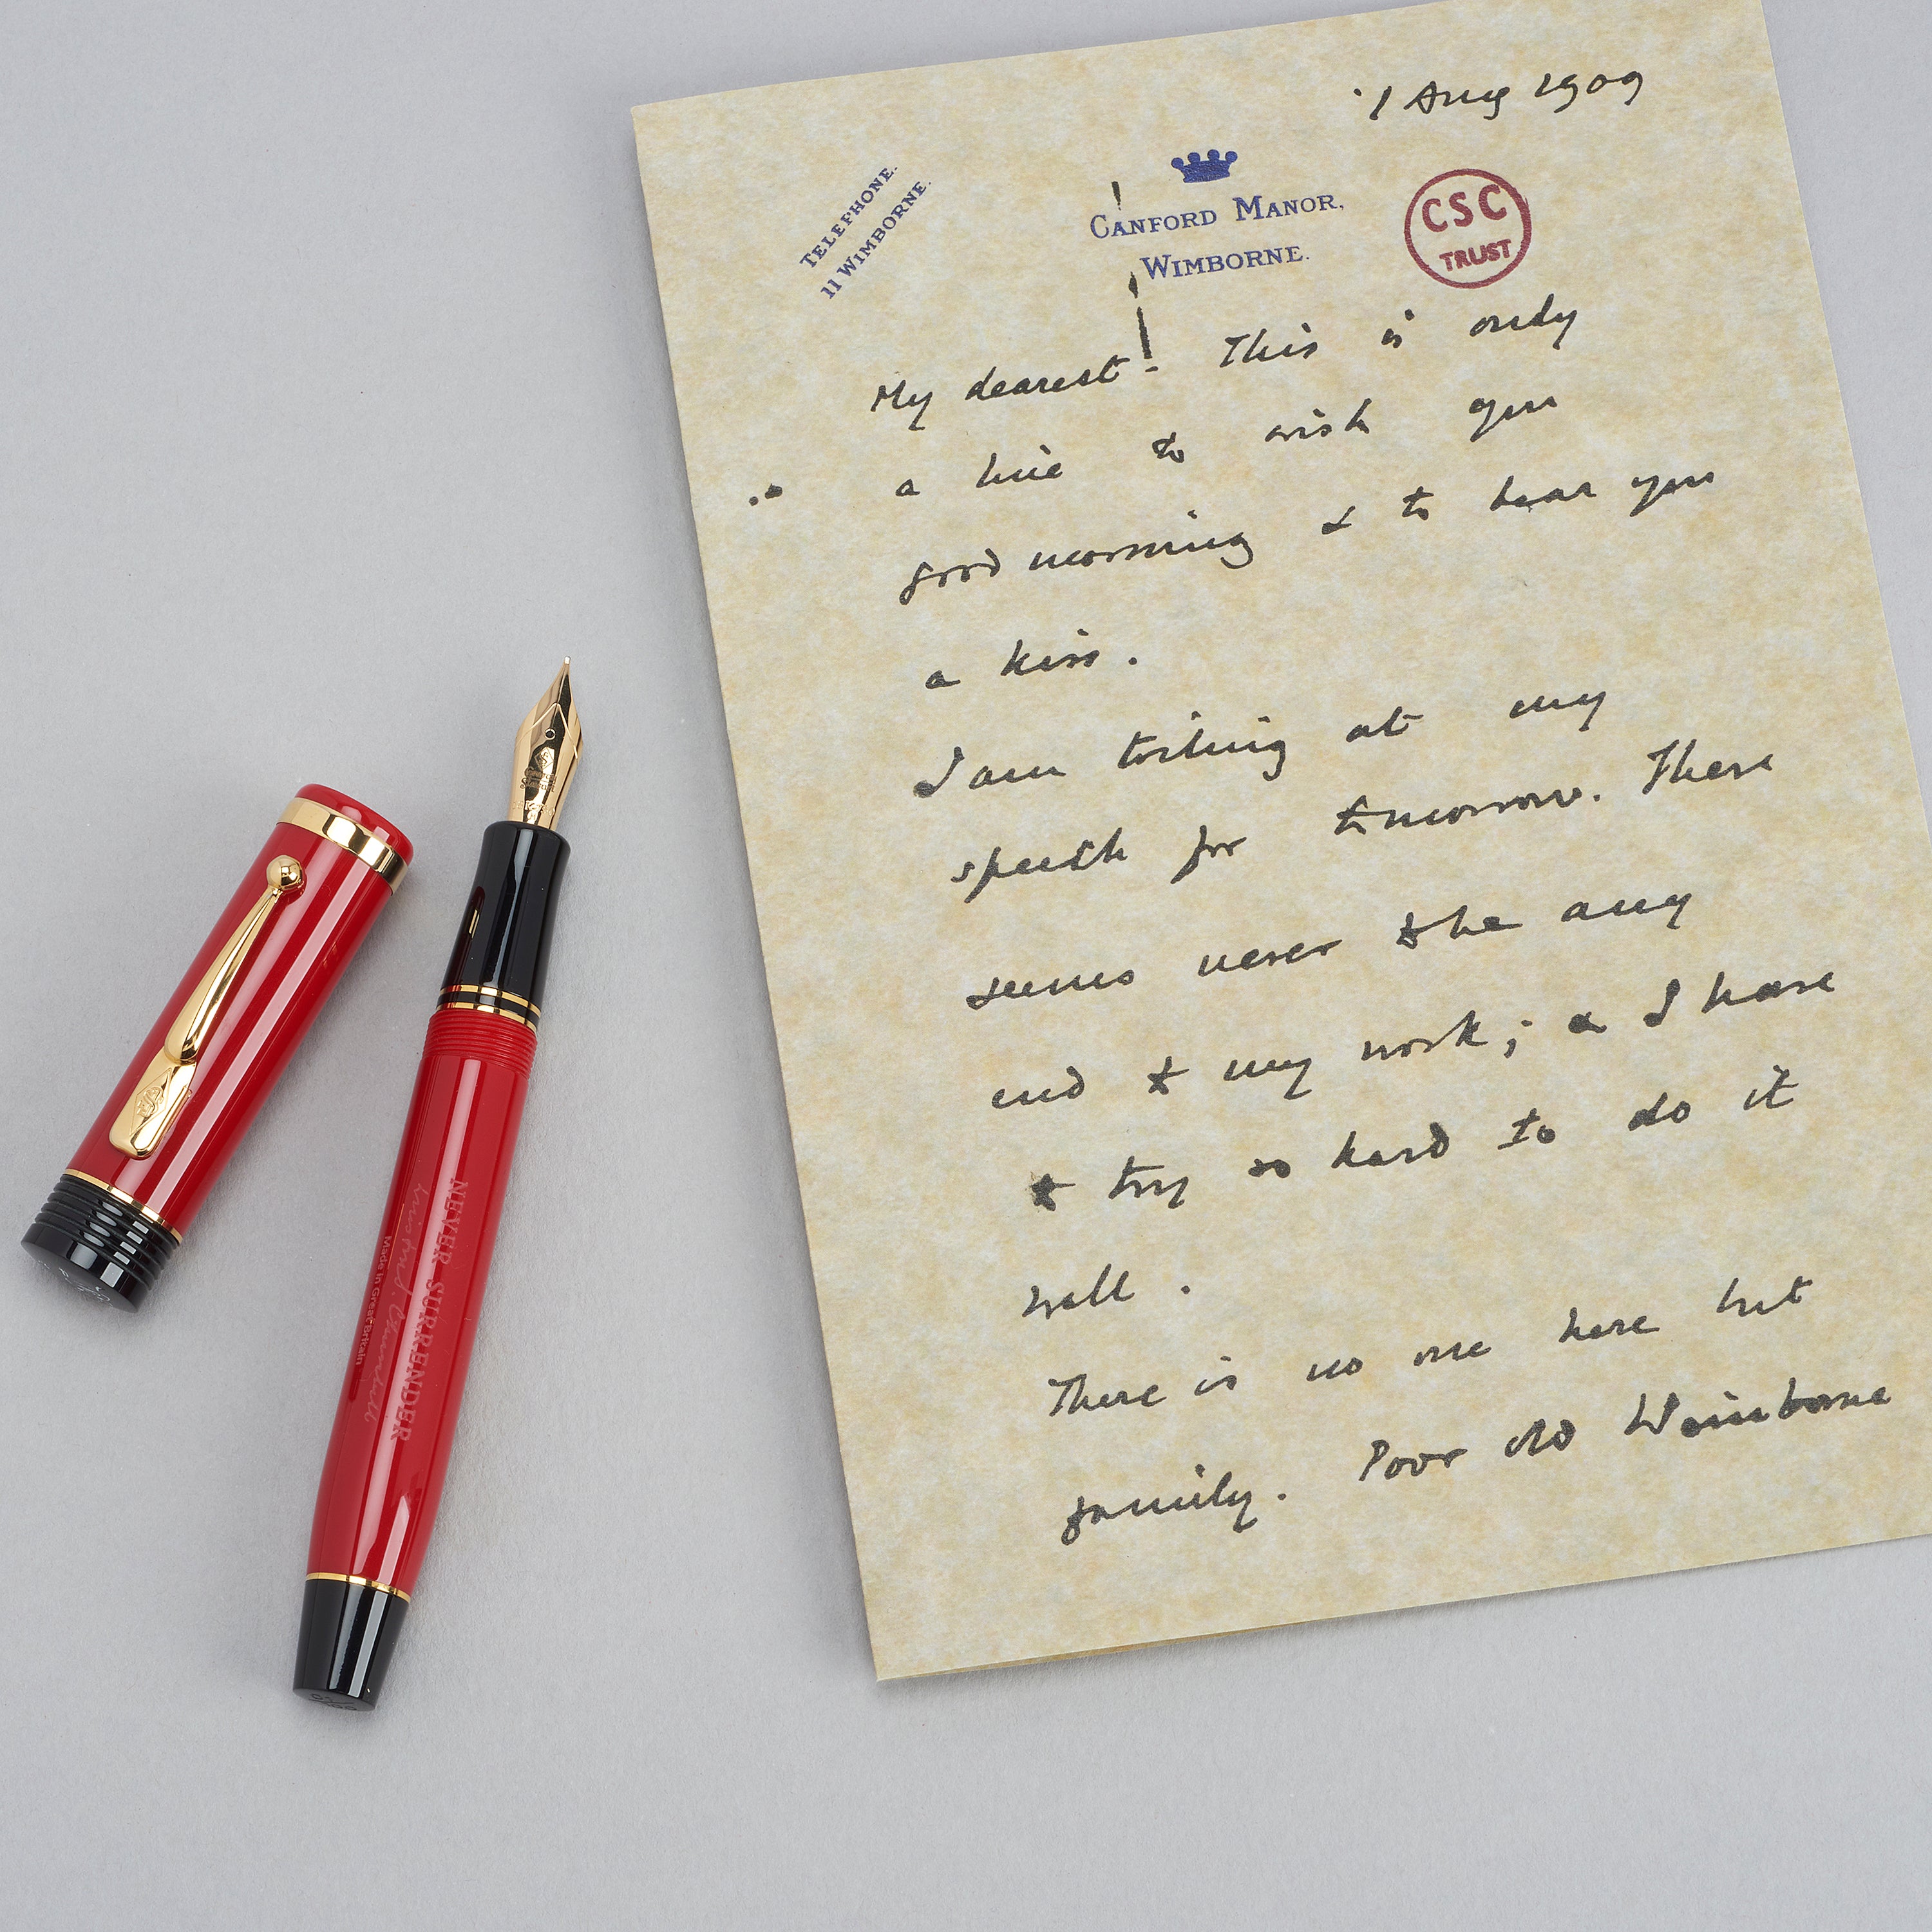 1 Aug 1909
TELEPHONE.
11 WIMBORNE.
CANFORD MANOR,
WIMBORNE.
CSC
TRUST
My dearest! This is only
a line to wish you
good morning & to hear you
a kiss.
I am toiling at my
speech for tomorrow. There
seems never to be any
end to my work; & I have
to try so hard to do it
well.
There is no one here but
family. Poor old Wimborne
NEVER SURRENDER
Winston S. Churchill
Made in Great Britain